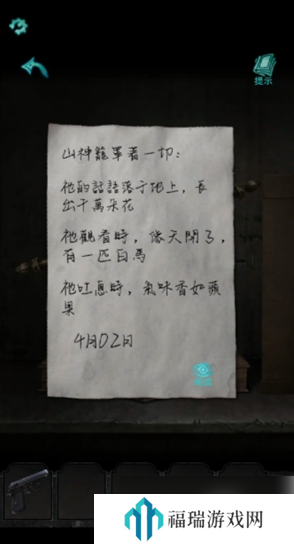 提示
山神籠罩着一切：
祂的話語落于地上，長
出千萬朵花
祂觀看時，像天開了，
有一匹白馬
祂吐息時，氣味香如蘋
果
4月02日
福瑞游戏网